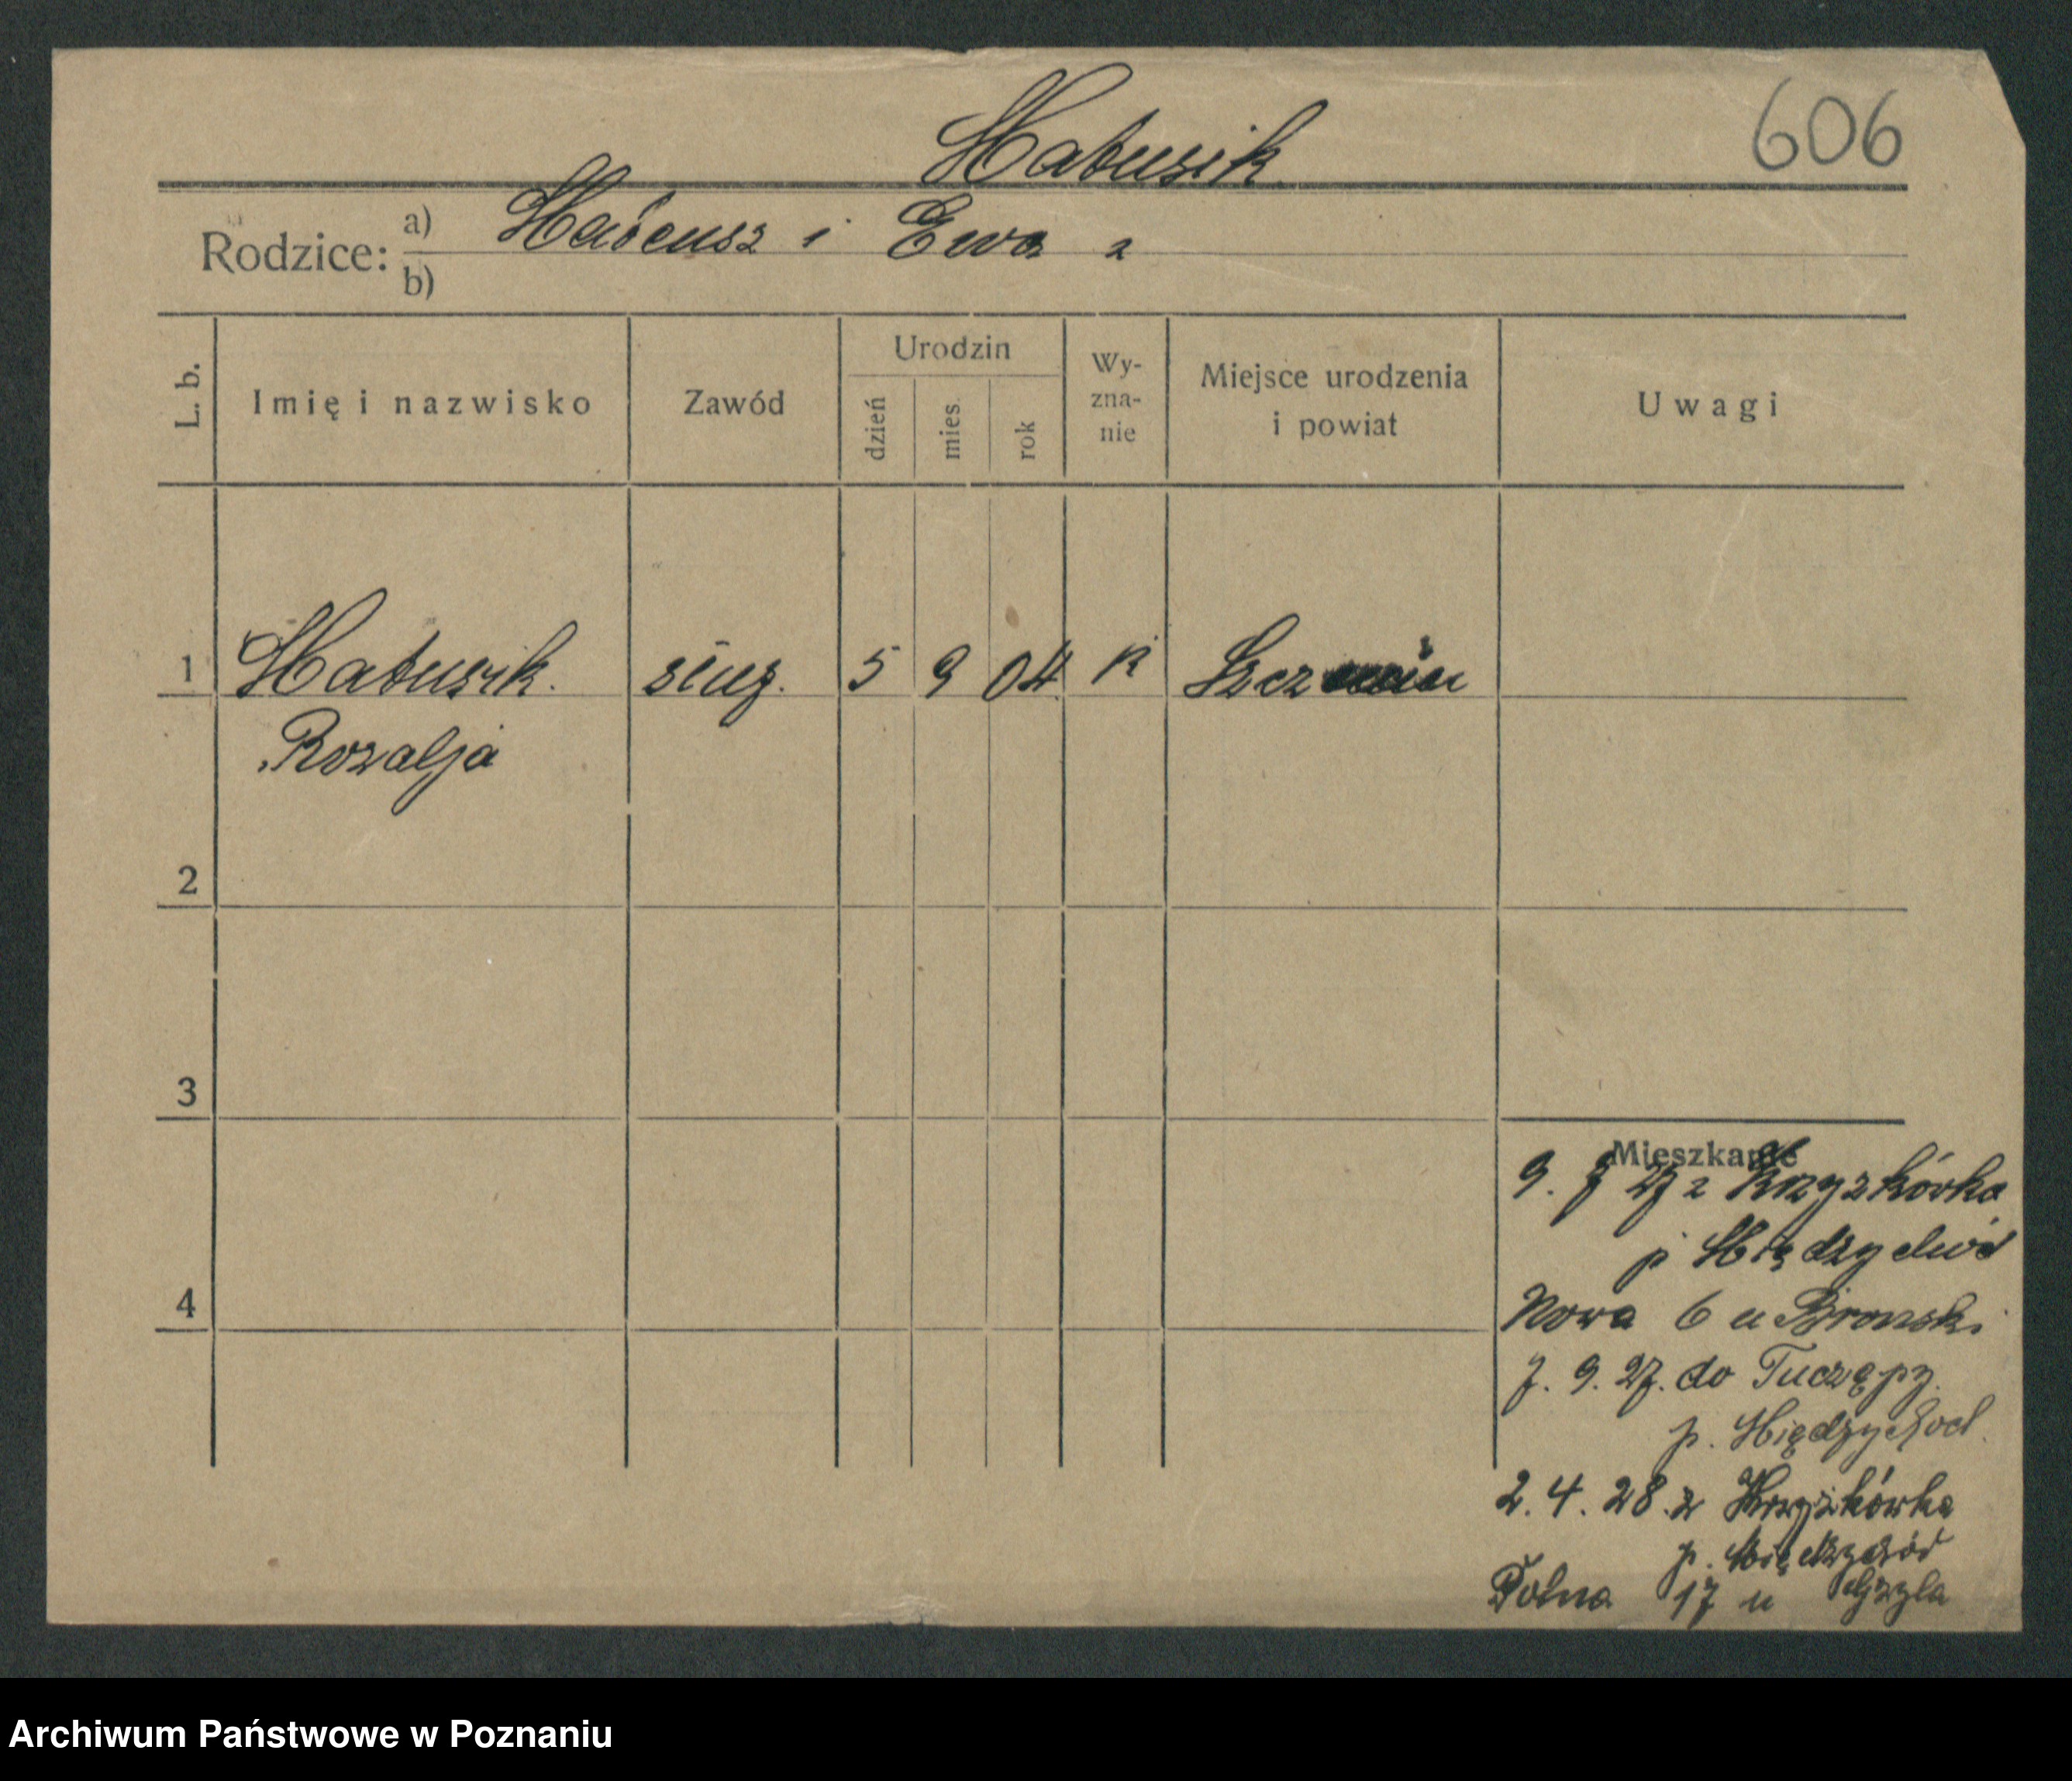 Matusik
606
Rodzice: a) Mateusz i Ewa z
b)
L. b.
Imię i nazwisko
Zawód
Urodzin
dzień
mies.
rok
Wy-
zna-
nie
Miejsce urodzenia
i powiat
Uwagi
1 Matusik. służ. 5 9 04 k
Rozalja
2
3
4
Mieszkanie
9. 27 z Krzyżkówka
p Międzychód
Nowa 6 u Bronski
7. 9. 27. do Tuczępy.
p. Międzychod.
2. 4. 28. z Krzyżkówka
p. Międzychód
Polna 17 u
Archiwum Państwowe w Poznaniu